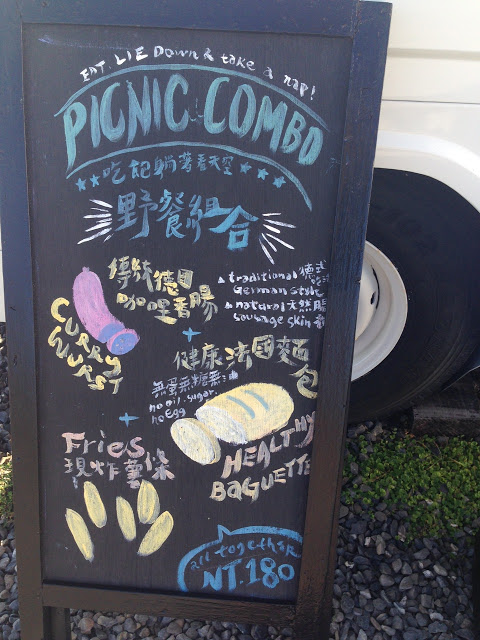 EAT. LIE DOWN & take a nap!
PICNIC COMBO
吃飽躺著看天空
野餐組合
傳統德國
咖哩香腸
CURRY WURST
traditional 德式
German style
natural 天然腸
sausage skin
+
健康法國麵包
無蛋無糖無油
no oil. sugar.
no egg
HEALTHY
BAGUETTE
+
Fries
現炸薯條
all together
NT.180